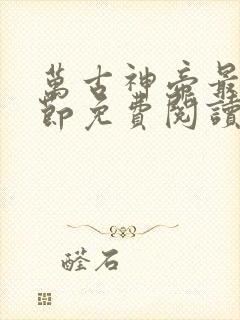 萬古神帝最
節免費閱讀
醛石